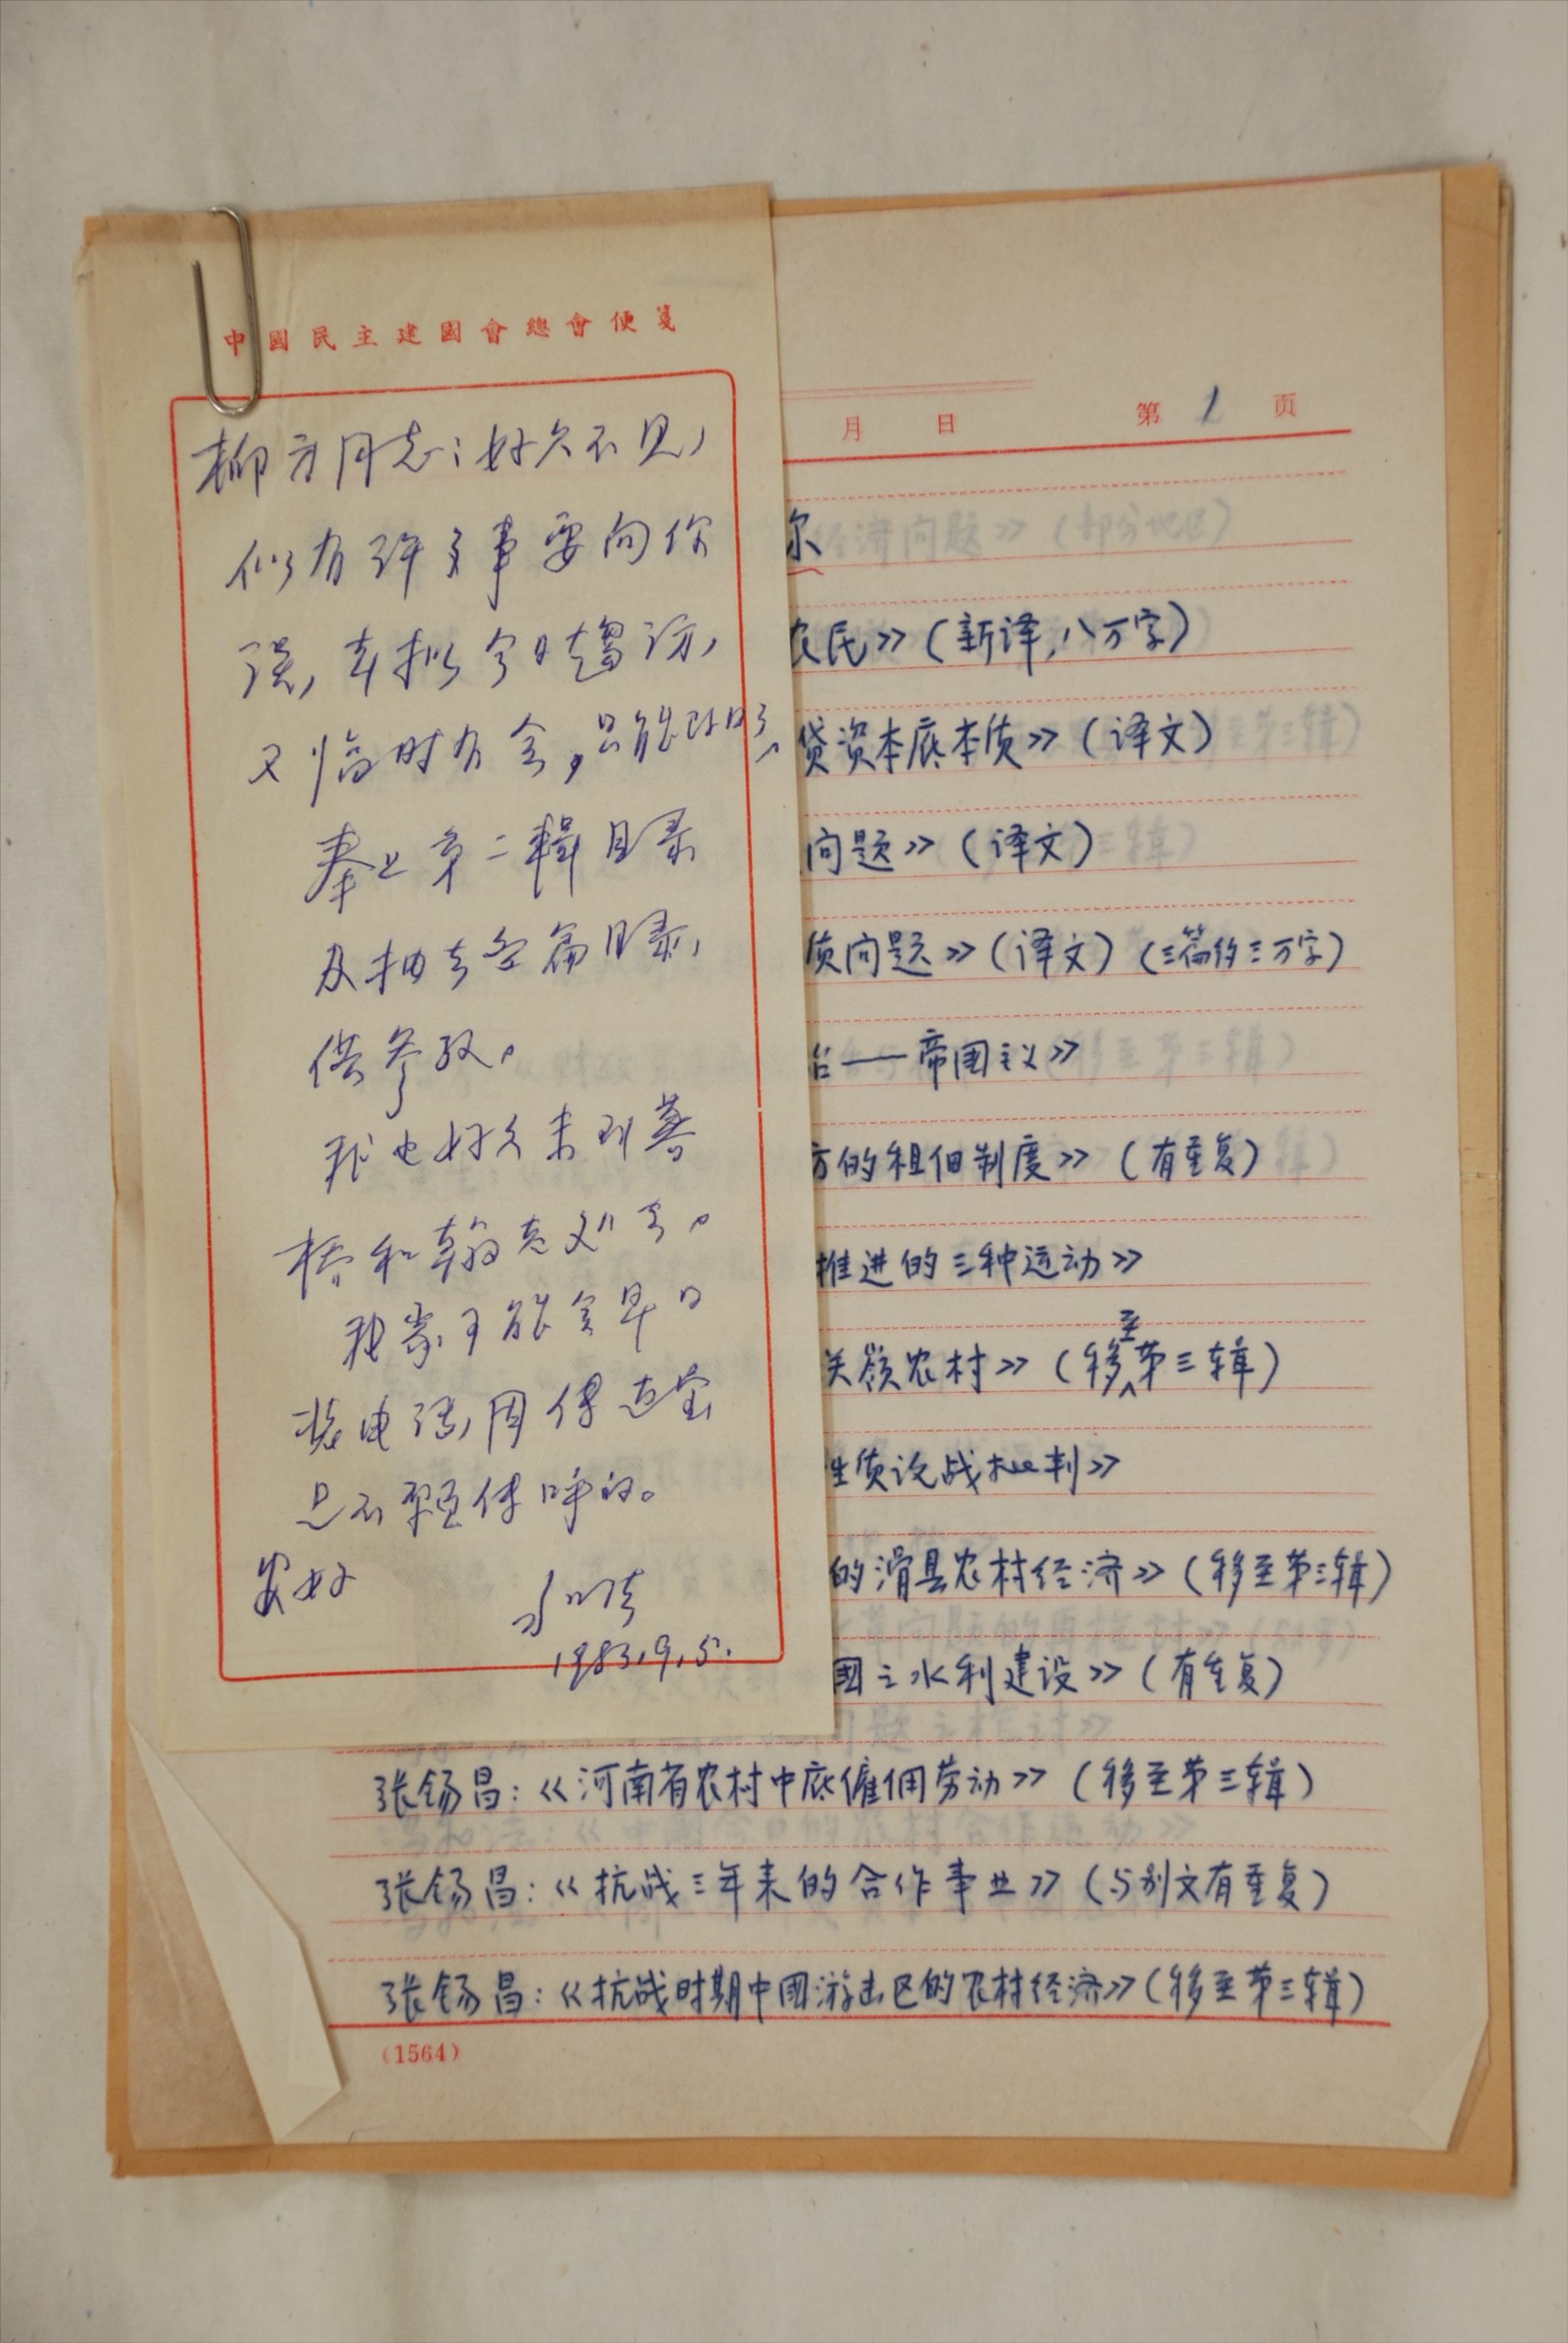 中國民主建國會總會便箋
柳方同志：好久不见，
似有许多事要向你
谈，本拟今日趋访，
又临时有会，只能改时，
奉上第二輯目录
及抽去各篇目录，
供参攷。
我也好久未到
和翰
我家可能会早日
装电话，因传达室
是不愿传呼的。
安好
1983.9.5.
月 日 第 1 页
尔
农民》（新译，八万字）
贷资本底本质》（译文）
问题》（译文）
质问题》（译文）（三篇约三万字）
台——帝国主义》
方的租佃制度》（有重复）
推进的三种运动》
关岭农村》（移至第三辑）
性质论战批判》
的滑县农村经济》（移至第三辑）
國之水利建设》（有重复）
张锡昌：《河南省农村中底僱佣劳动》（移至第三辑）
张锡昌：《抗战三年来的合作事业》（与别文有重复）
张锡昌：《抗战时期中國游击区的农村经济》（移至第三辑）
(1564)